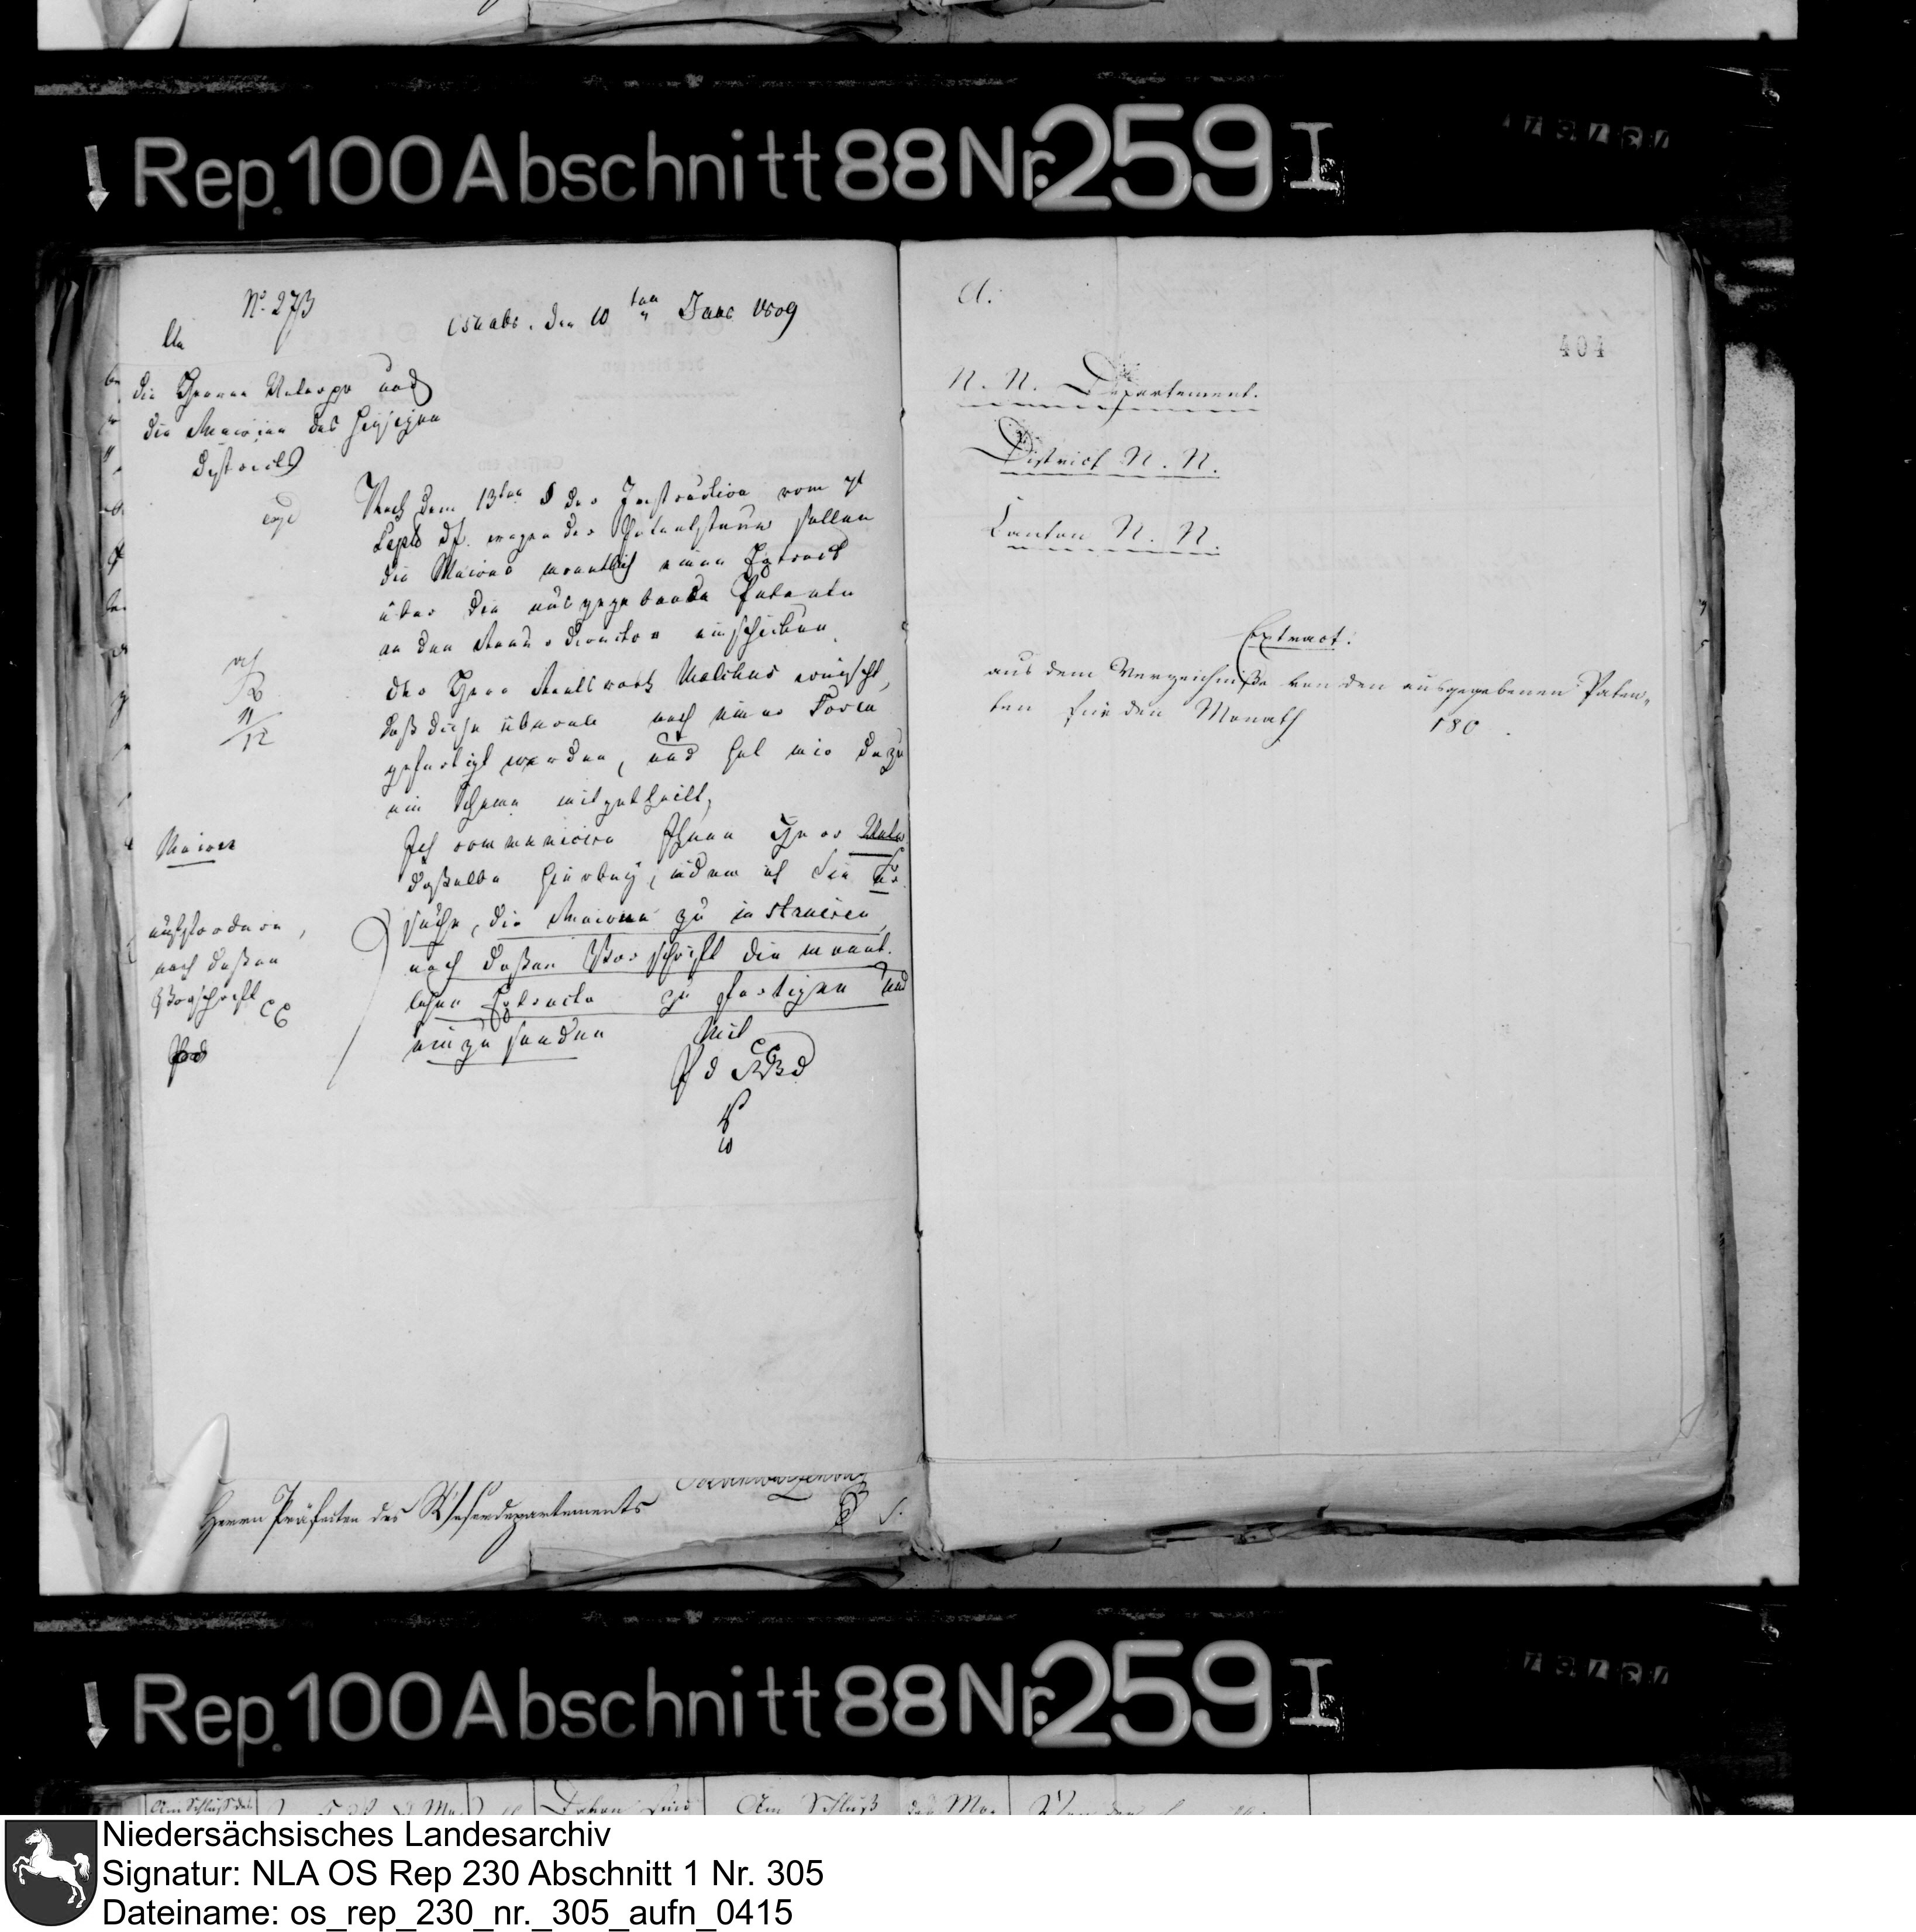 Rep. 100 Abschnitt 88 Nr. 259 I
No. 273
Osnabr. den 10ten Janr 1809
An
die Herren Unterpr und
die Mairien des hiesigen
Districts
Nach dem 13ten § der Instruction vom
Septb v. J. wegen der Patentsteuer sollen
die Maires monatlich einen Extract
über die ausgegebenen Patente
an den Steuerdirector einschicken.
Der Herr Staatsrath Malchus wünscht,
daß diese überall nach einer Form
gefertigt werden, und hat mir dazu
ein Schema mitgetheilt,
Maires
Ich communicire Ihnen Herr Unter
dasselbe hierbey, indem ich Sie er
suche, die Maires zu instruiren,
nach dessen Vorschrift die monat
lichen Extracte zu fertigen und
einzusenden
Mit
auffordern,
nach dessen
Vorschrift
10
Herrn Präfecten des Weserdepartements
A.
404
N. N. Departement.
District N. N.
Canton N. N.
Extract.
aus dem Verzeichniße von den ausgegebenen Paten-
ten für den Monath 180 .
Rep. 100 Abschnitt 88 Nr. 259 I
Am Schluß des
Am Schluß des Mo-
Niedersächsisches Landesarchiv
Signatur: NLA OS Rep 230 Abschnitt 1 Nr. 305
Dateiname: os_rep_230_nr._305_aufn_0415